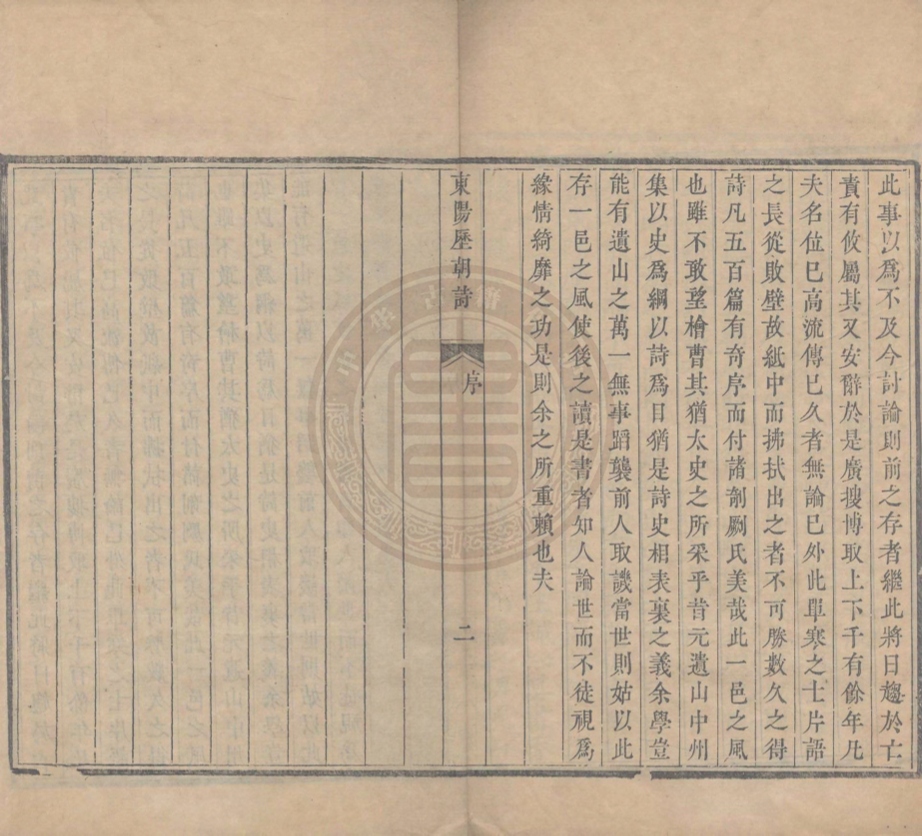 此事以爲不及今討論則前之存者繼此將日趨於亡
責有攸屬其又安辭於是廣搜博取上下千有餘年凡
夫名位已高流傳已久者無論已外此單寒之士片語
之長從敗壁故紙中而拂拭出之者不可勝數久之得
詩凡五百篇有奇序而付諸剞劂氏美哉此一邑之風
也雖不敢望檜曹其猶太史之所采乎昔元遺山中州
集以史爲綱以詩爲目猶是詩史相表裏之義余學豈
能有遺山之萬一無事蹈襲前人取譏當世則姑以此
存一邑之風使後之讀是書者知人論世而不徒視爲
緣情綺靡之功是則余之所重賴也夫
東陽歷朝詩 序 二